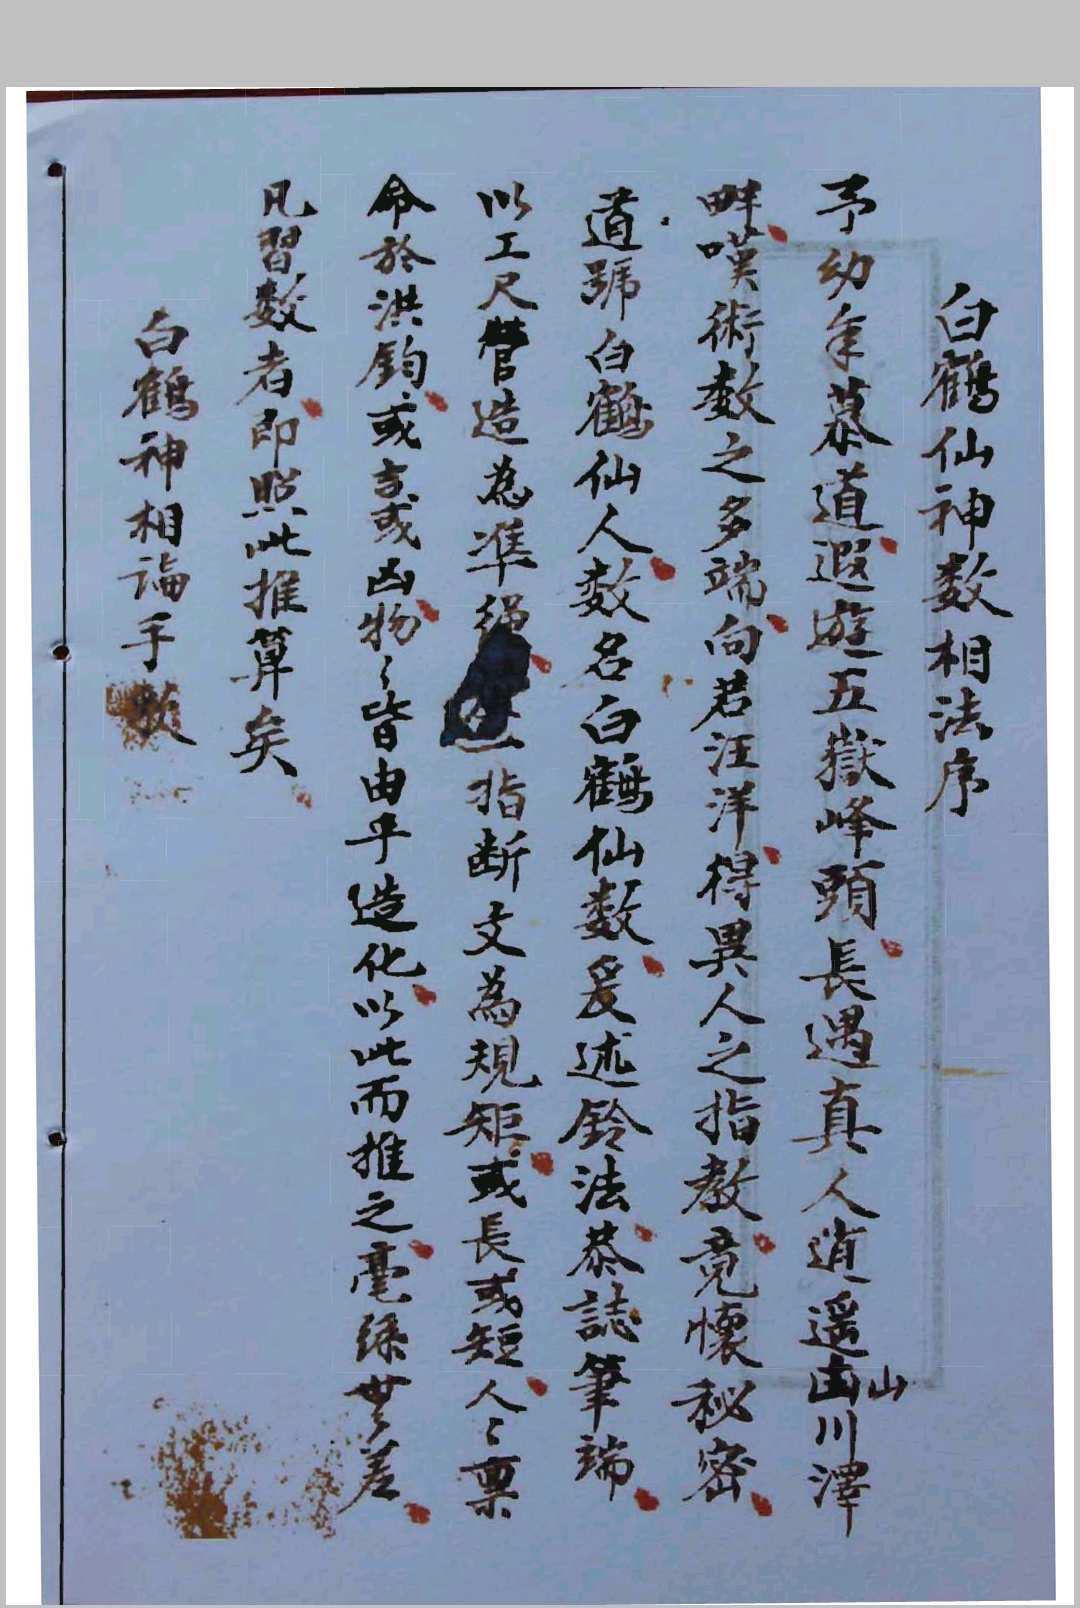 白鶴仙神数相法序
予幼年慕道遐遊五嶽峰頭長遇真人逍遥山川澤
畔嘆術数之多端向若汪洋得異人之指教竟懷秘密
道號白鶴仙人数名白鶴仙数爰述鈴法恭誌筆端
以工尺營造為準繩指断文為規矩或長或短人〻禀
命於洪鈞或吉或凶物〻皆由乎造化以此而推之毫綠無差
凡習数者即照此推算矣
白鶴神相論手数